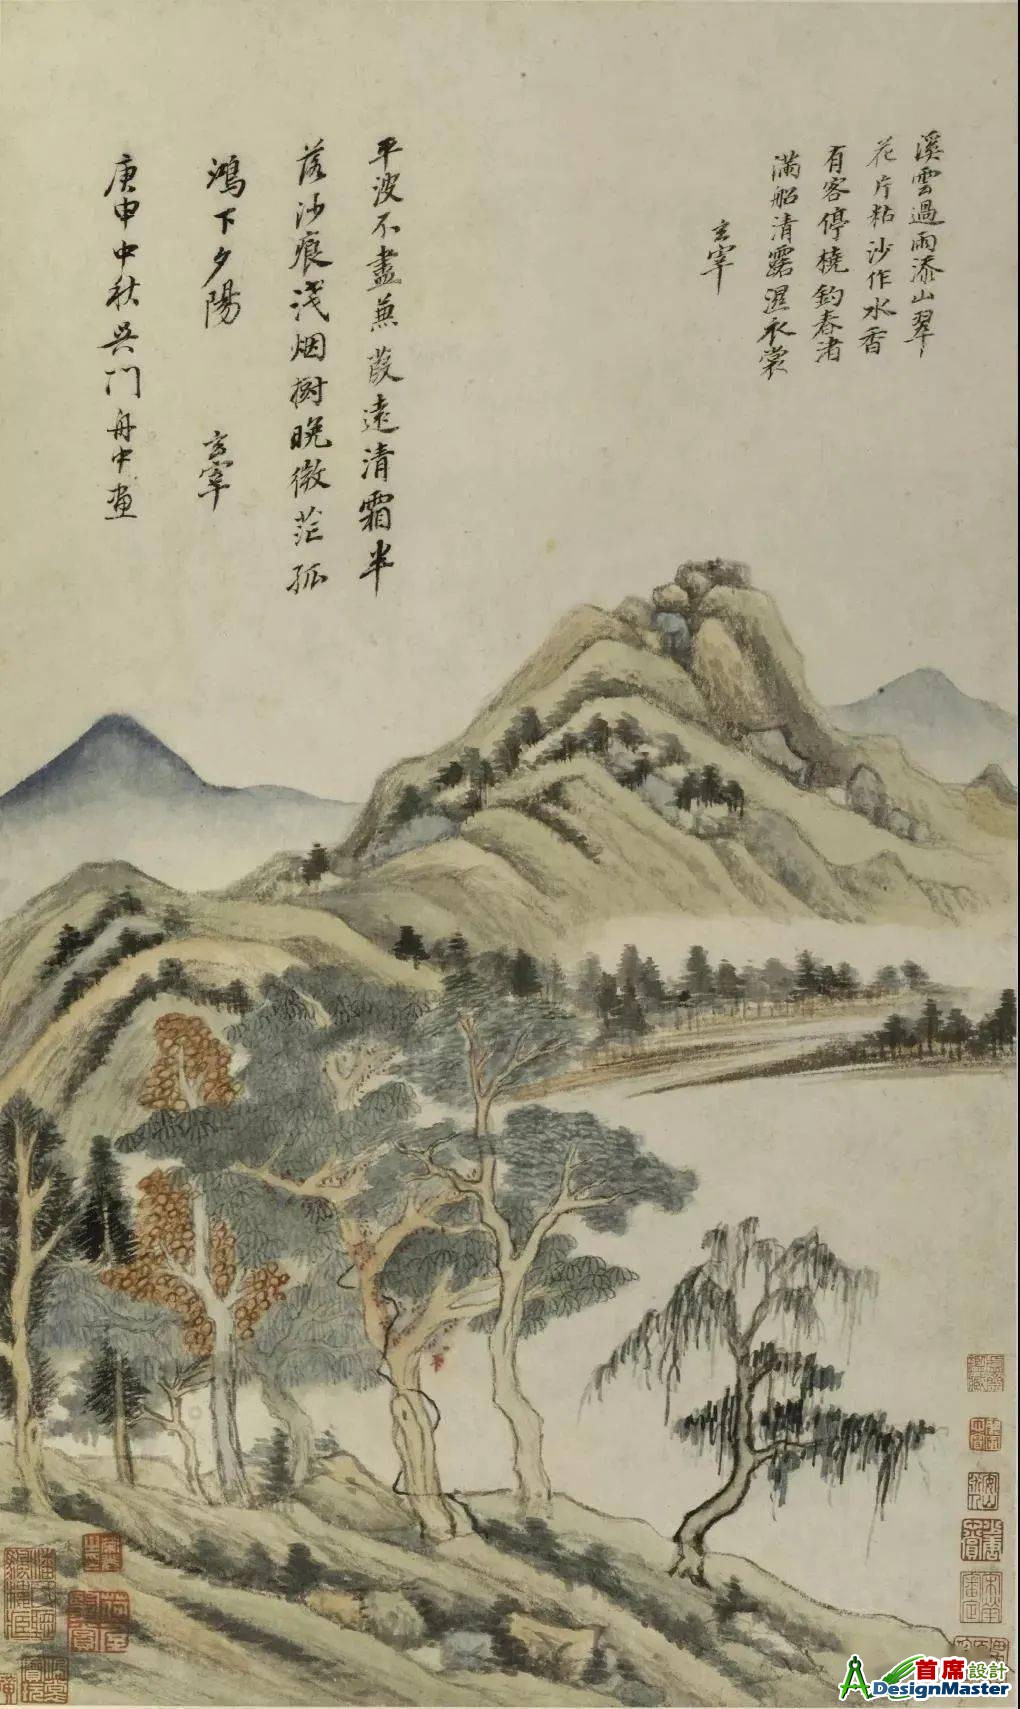 溪雲過雨添山翠
花片粘沙作水香
有客停橈釣春渚
滿船清露濕衣裳
玄宰
平波不盡蒹葭遠清霜半
落沙痕淺烟樹晚微茫孤
鴻下夕陽
玄宰
庚申中秋吳門舟中畫
首席設計
DesignMaster